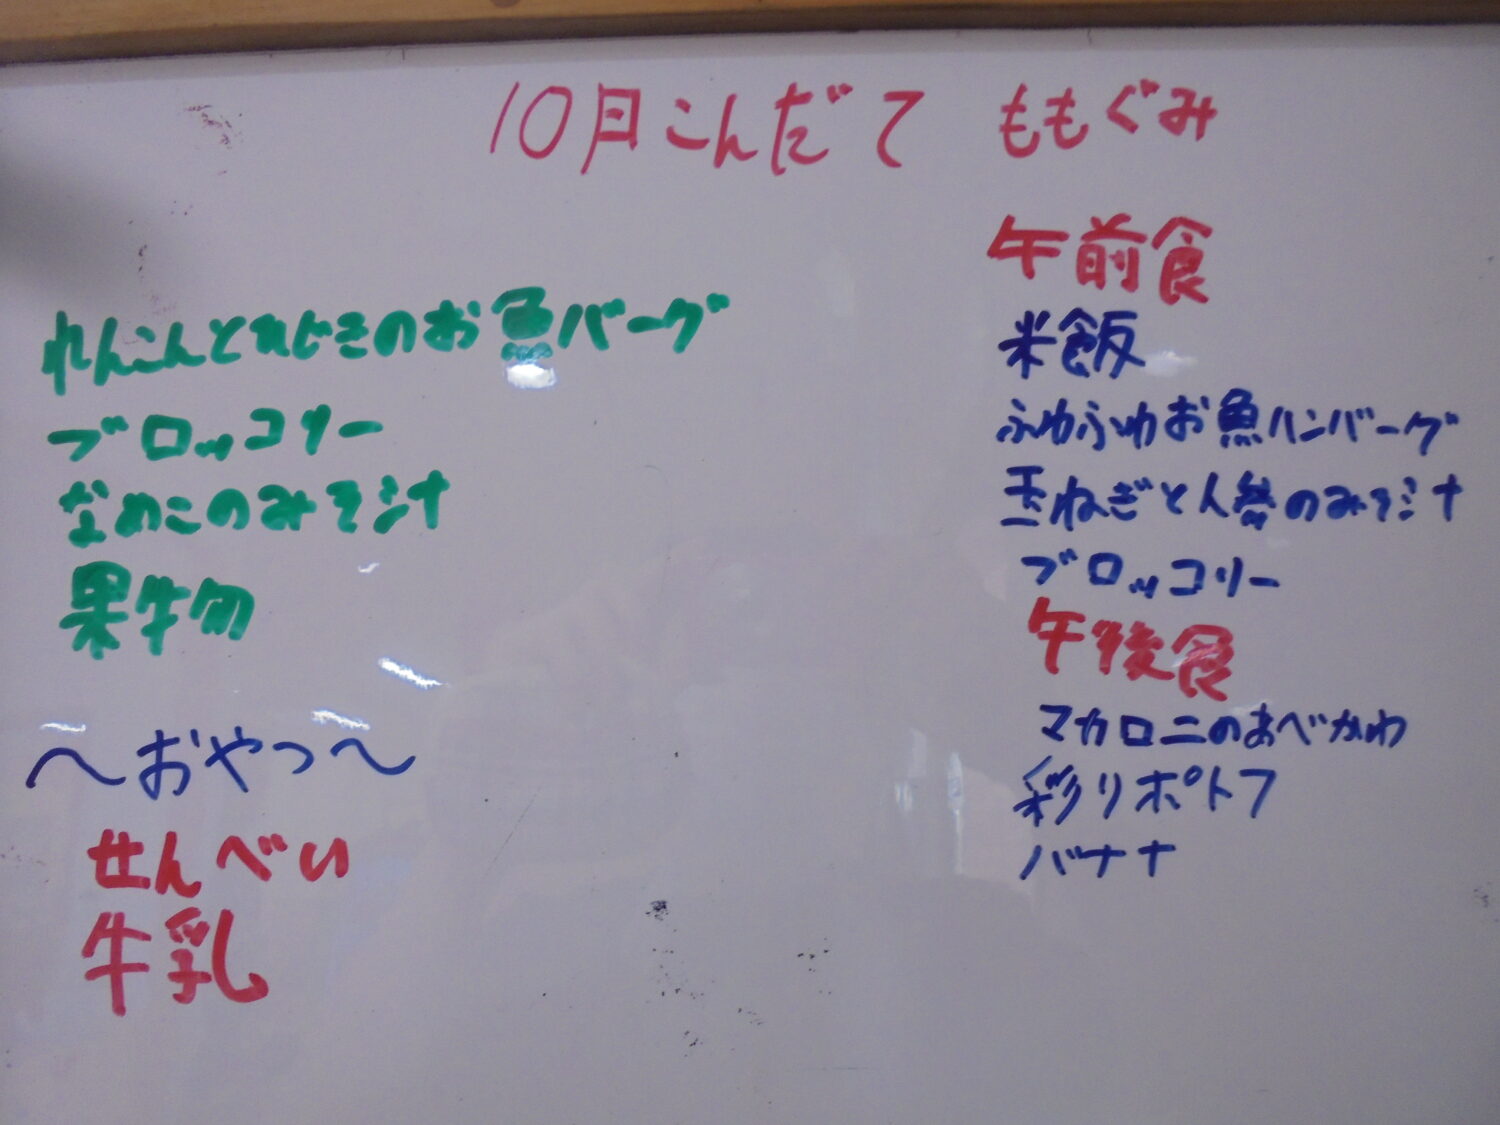 10月こんだて
れんこんとひじきのお魚バーグ
ブロッコリー
なめこのみそ汁
果物
～おやつ～
せんべい
牛乳
ももぐみ
午前食
米飯
ふわふわお魚ハンバーグ
玉ねぎと人参のみそ汁
ブロッコリー
午後食
マカロニのあべかわ
彩りポトフ
バナナ